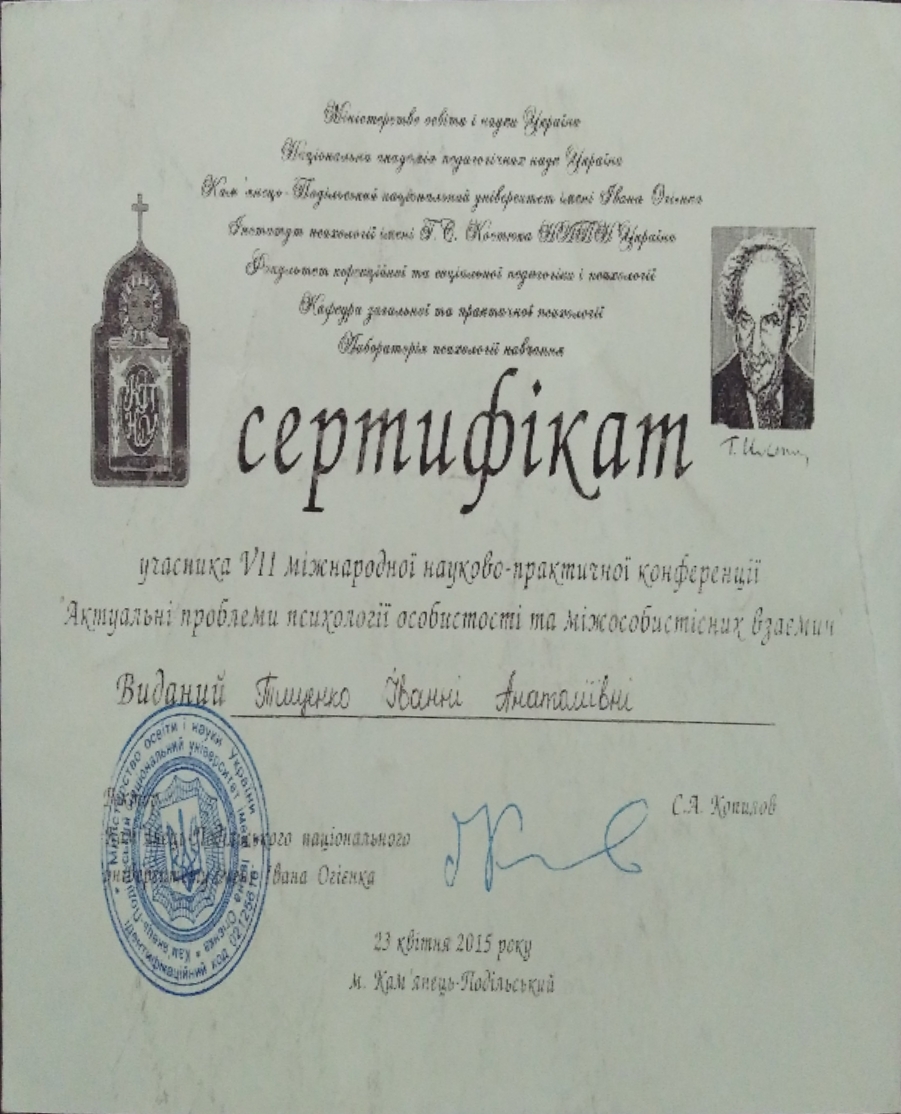 Міністерство освіти і науки України
Національна академія педагогічних наук України
Кам'янець-Подільський національний університет імені Івана Огієнка
Інститут психології імені Г.С. Костюка НАПН України
Факультет корекційної та соціальної педагогіки і психології
Кафедра загальної та практичної психології
Лабораторія психології навчання
сертифікат
учасника VII міжнародної науково-практичної конференції
"Актуальні проблеми психології особистості та міжособистісних взаємин"
Виданий Тищенко Іванні Анатоліївні
Ректор
Кам'янець-Подільського національного
університету імені Івана Огієнка
С.А. Копилов
Міністерство освіти і науки України
національний університет імені Івана Огієнка
Ідентифікаційний код
23 квітня 2015 року
м. Кам'янець-Подільський